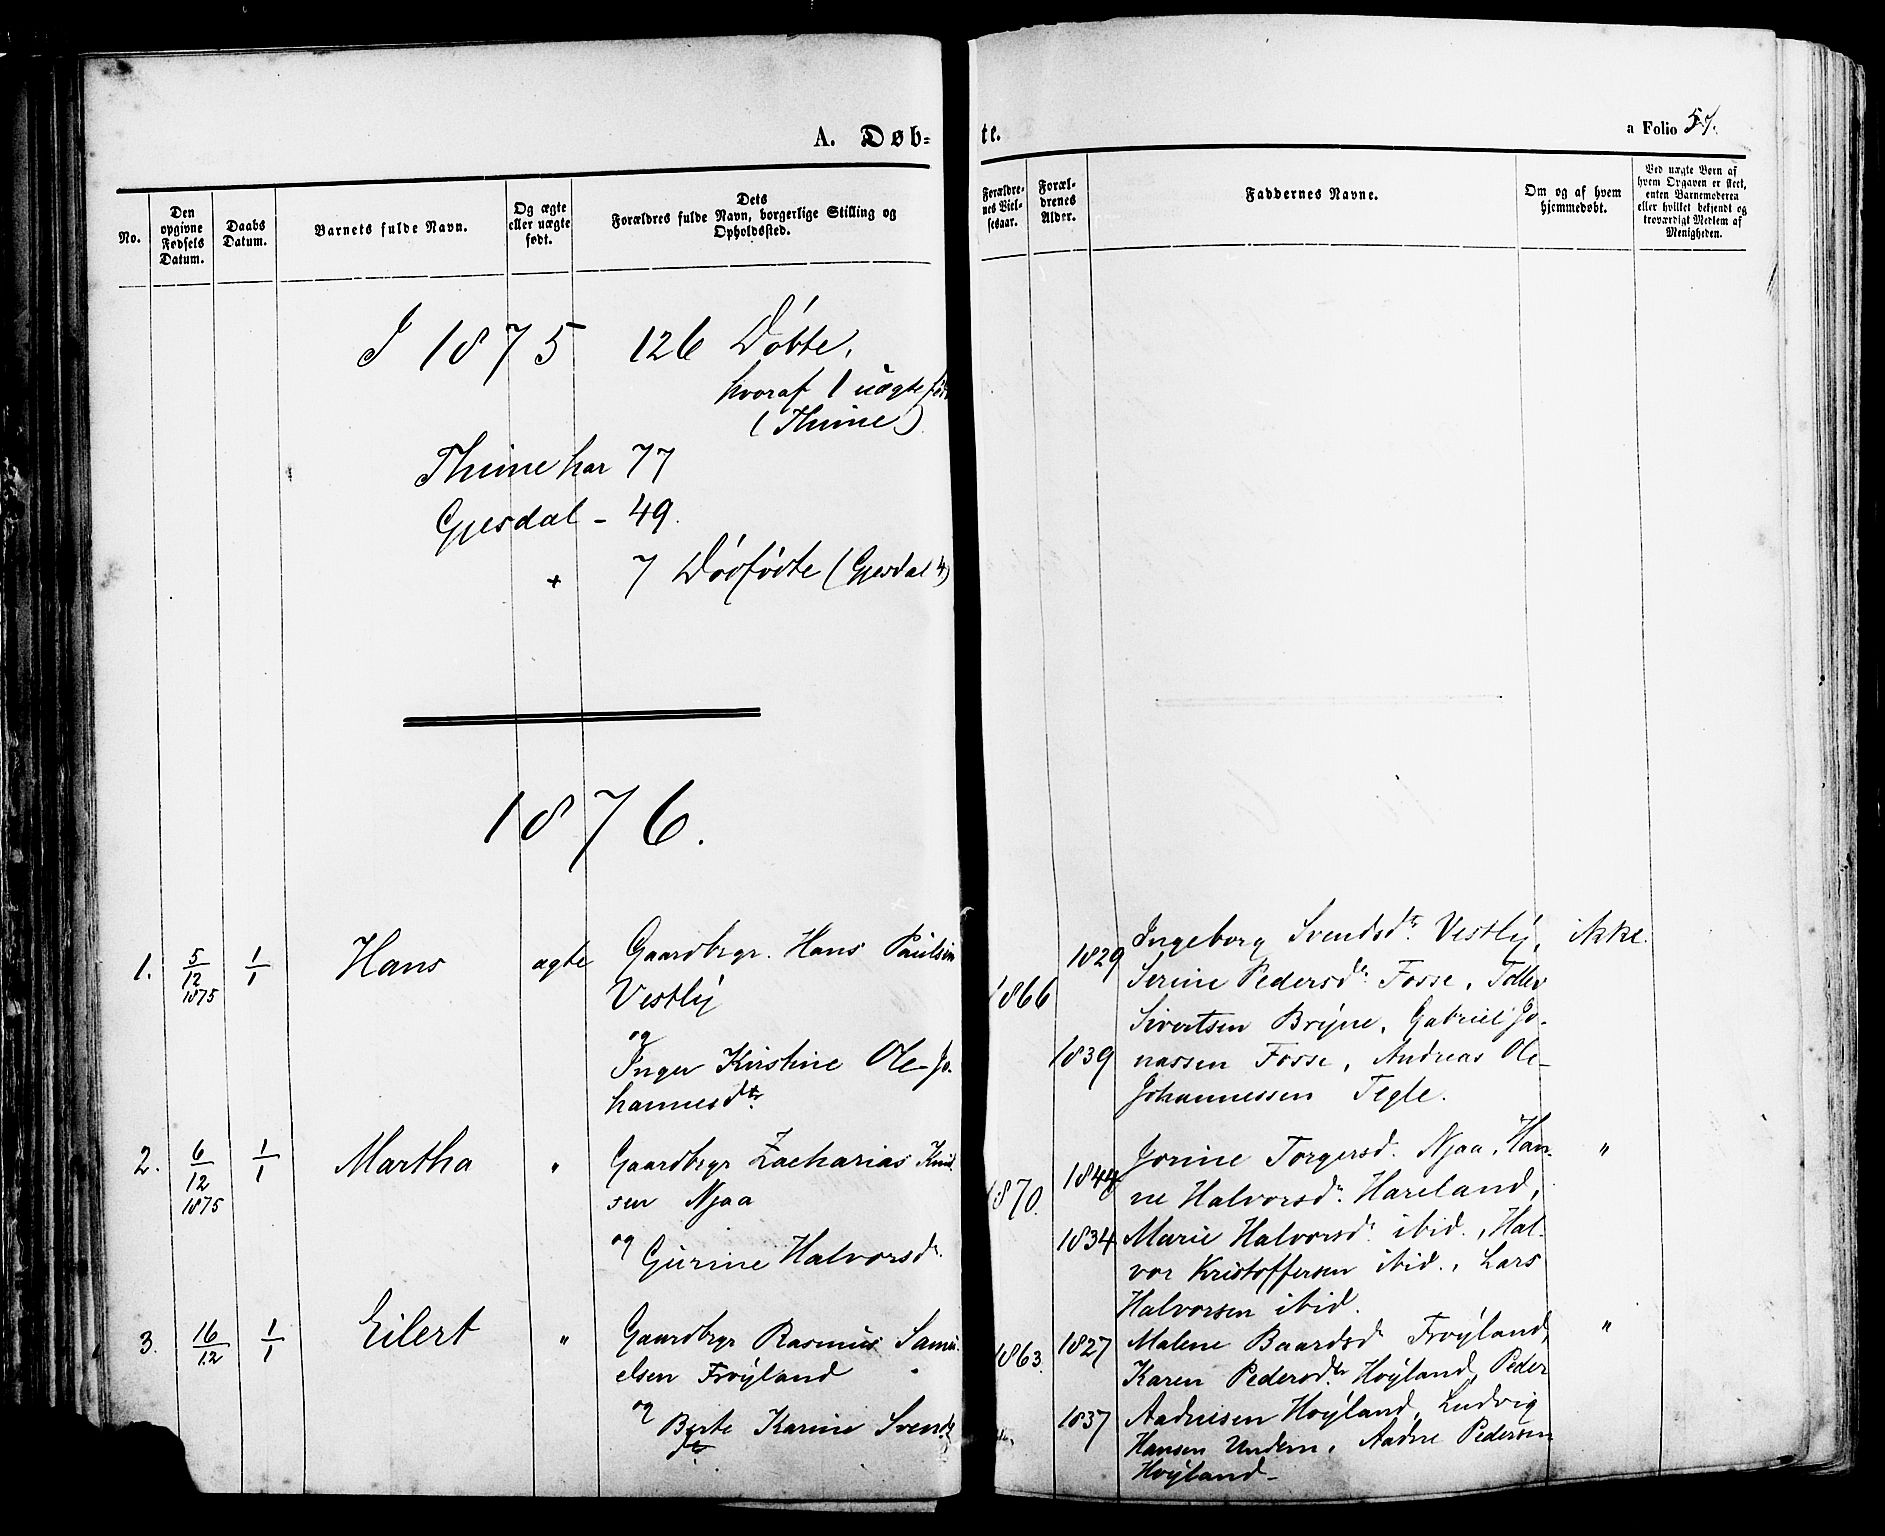 A. Døb=
te.
a Folio 57.
No.
Den opgivne Fødsels Datum.
Daabs Datum.
Barnets fulde Navn.
Og ægte eller uægte født.
Dets Forældres fulde Navn, borgerlige Stilling og Opholdssted.
Forældrenes Vielsesaar.
Forældrenes Alder.
Faddernes Navne.
Om og af hvem hjemmedøbt.
Ved uægte Børn af hvem Opgaven er skeet, enten Barnemoderen eller hvilket bekjendt og troværdigt Medlem af Menigheden.
I 1875 126 Döbte,
hvoraf 1 uægte
(Thime)
Thime har 77
Gjesdal - 49.
+ 7 Dödfödte (Gjesdal 4)
1876.
1. 5/12 1875 1/1 Hans ægte
Gaardbrgr. Hans Paulsen
Vestly
og
Inger Kirstine Ole Jo-
hannesdtr.
1866
1829
1839
Ingeborg Svendsdr. Vestly,
Serine Pedersdr. Fosse, Tollev
Sivertsen Bryne, Gabriel Jo-
nassen Fosse, Andreas Ole-
Johannessen Tegle.
ikke.
2. 6/12 1875 1/1 Martha "
Gaardbrgr Zacharias Knud
sen Njaa
og Gurine Halvorsdr.
1870.
1844
1834
Jorine Torgersd. Njaa, Han-
ne Halvorsdr. Hareland,
Marie Halvorsdr ibid., Hal-
vor Kristoffersen ibid., Lars
Halvorsen ibid.
"
3. 16/12 1/1 Eilert "
Gaardbrgr Rasmus Samu
elsen Fröyland
og Berte Karine Svends
dtr.
1863.
1827
1837
Malene Baardsdr Fröyland,
Karen Pedersdtr Höyland, Peder
Aadnesen Höyland, Ludvig
Hansen Undem, Aadne Pedersen
Höyland-
"